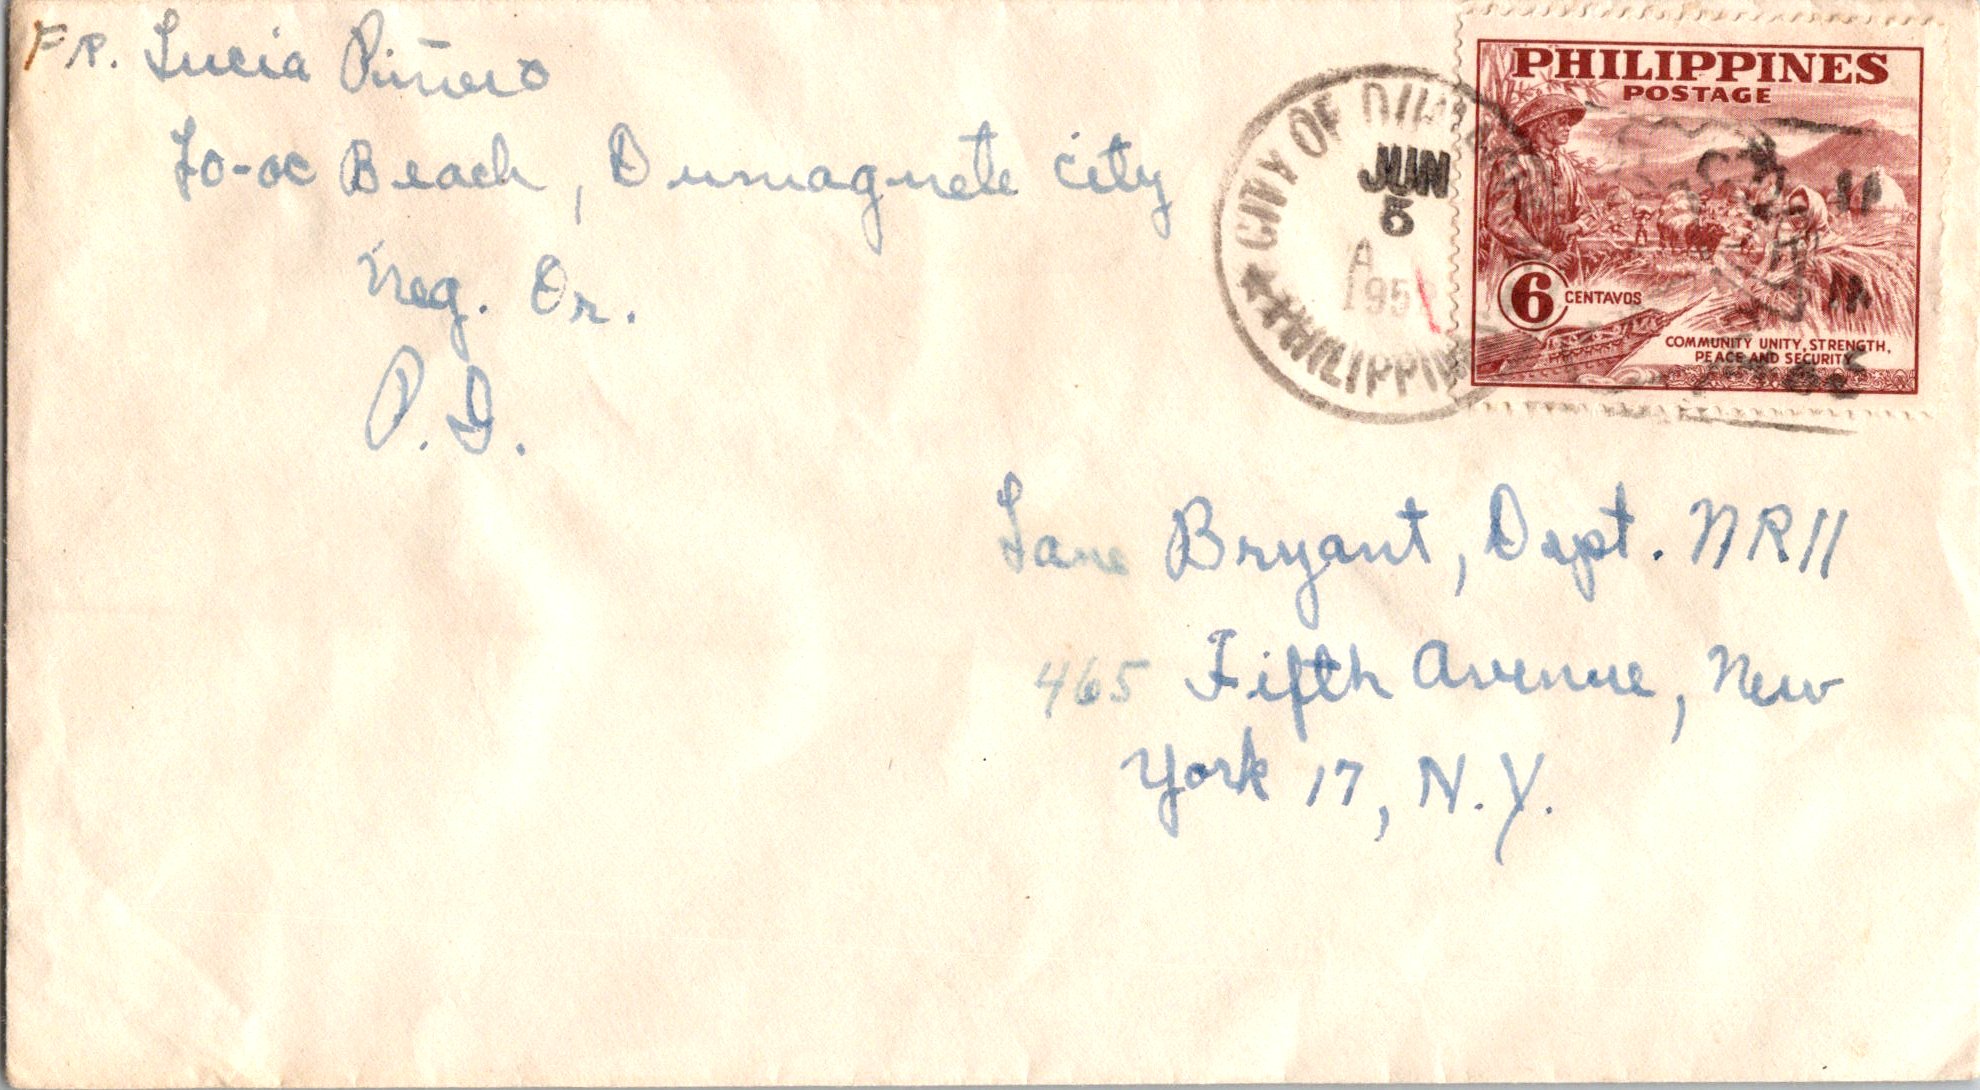 FR. Lucia Piñero
Lo-oc Beach, Dumaguete City
Neg. Or.
P. I.
CITY OF DUM
JUN
5
A
195
PHILIPPIN
PHILIPPINES
POSTAGE
6 CENTAVOS
COMMUNITY UNITY, STRENGTH,
PEACE AND SECURITY
Lane Bryant, Dept. NR11
465 Fifth Avenue, New
York 17, N.Y.